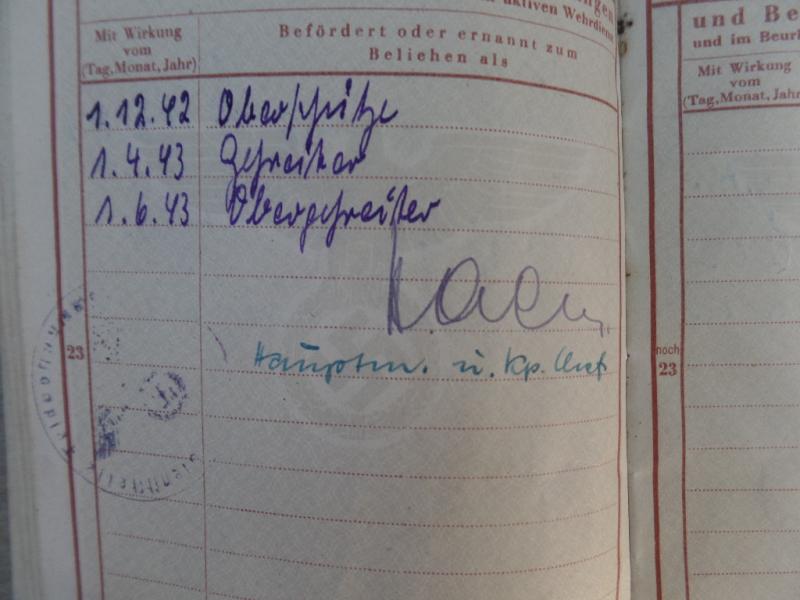 aktiven Wehrdienst
Mit Wirkung
vom
(Tag, Monat, Jahr)
Befördert oder ernannt zum
Beliehen als
1.12.42 Oberschütze
1.4.43 Gefreiter
1.6.43 Obergefreiter
Hauptm. u. Kp. Chef
23
und Be
und im Beurl
Mit Wirkung
vom
(Tag, Monat, Jahr
noch
23